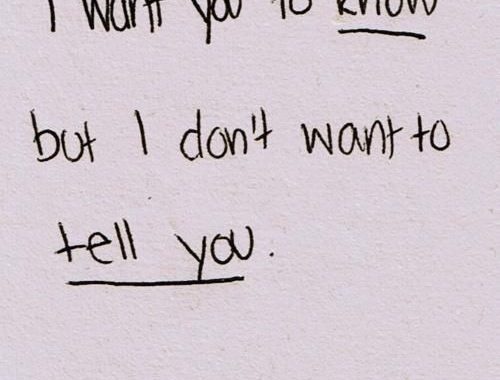 I want you to know
but I don't want to
tell you.